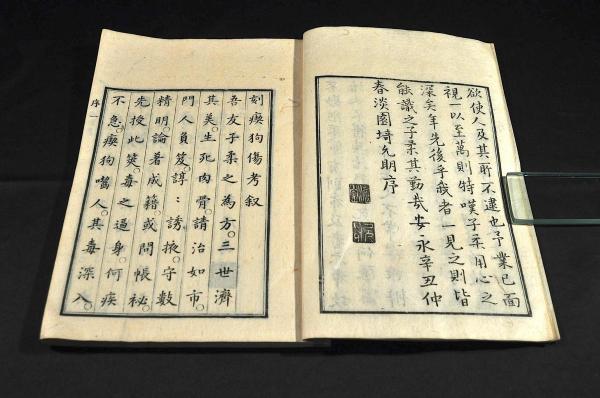 欲使人及其所不逮也予業已面
視一以至萬則特嘆子柔用心之
深矣年先後乎者一見之則皆
能識之子柔其勤哉安永辛丑仲
春淡園埼允明序
刻瘈狗傷考叙
吾友子柔之為方。三世濟
其美。生死肉骨。請治如市。
門人負笈。諄〻誘掖。守數
精明。論著成籍。或問帳秘
先授此筴。毒之過身。何疾
不急。瘈狗噬人。其毒深入。
序 一